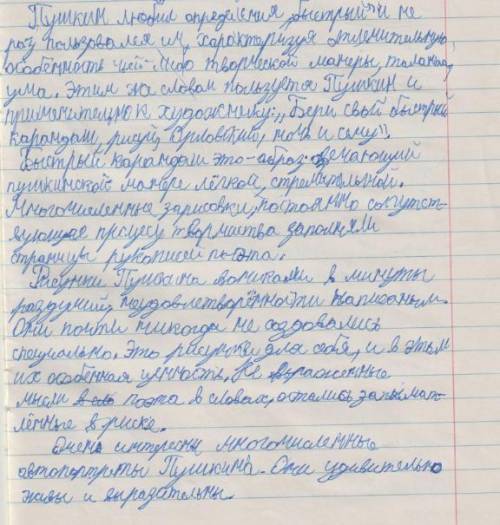 Пушкин любил определения "быстрый" и не
раз пользовался им, характеризуя отличительную
особенность чьей-либо творческой манеры, таланта,
ума. Этим же словом пользуется Пушкин и
применительно к художнику: "Бери свой быстрый
карандаш, рисуй, Орловский, ночь и сечу".
Быстрый карандаш это-образ отвечающий
пушкинской манере лёгкой, стремительной.
Многочисленные зарисовки, постоянно сопутст-
вующие процесу творчества заполняли
страницы рукописей поэта.
Рисунки Пушкина возникали в минуты
раздумий, неудовлетворённости написаным.
Они почти никогда не создавались
специально. Это рисунки для себя, и в этом
их особенная ценность. Не выраженные
мысли поэта в словах, остались запечат-
лённые в риске.
Очень интересны многочисленные
автопортреты Пушкина. Они удивительно
живы и выразательны.